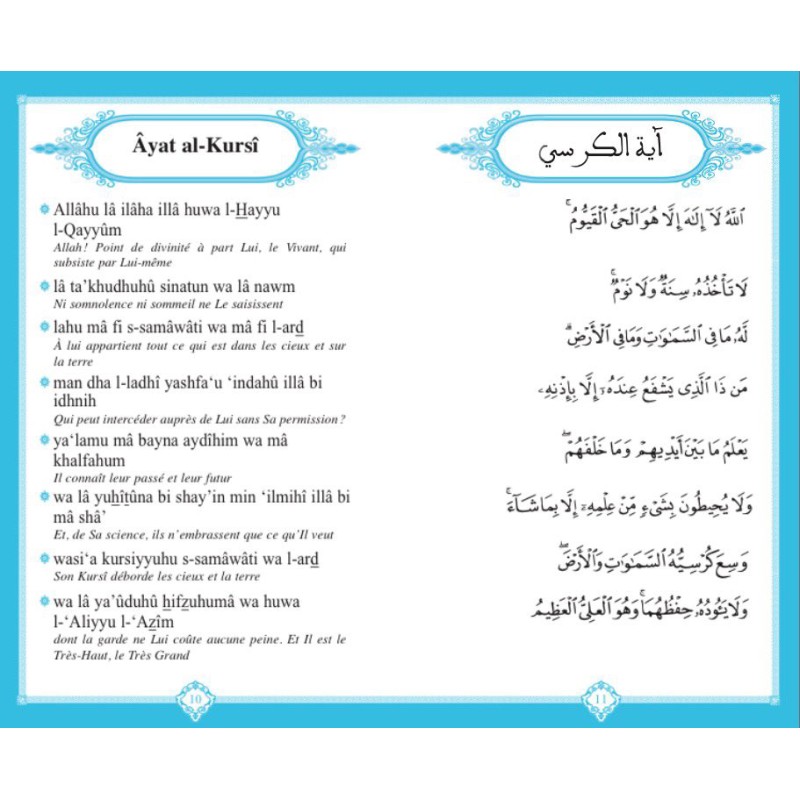 Âyat al-Kursî
Allâhu lâ ilâha illâ huwa l-H̲ayyu
l-Qayyûm
Allah ! Point de divinité à part Lui, le Vivant, qui
subsiste par Lui-même
lâ ta’khudhuhû sinatun wa lâ nawm
Ni somnolence ni sommeil ne Le saisissent
lahu mâ fî s-samâwâti wa mâ fî l-ard̲
À lui appartient tout ce qui est dans les cieux et sur
la terre
man dha l-ladhî yashfa‘u ‘indahû illâ bi
idhnih
Qui peut intercéder auprès de Lui sans Sa permission ?
ya‘lamu mâ bayna aydîhim wa mâ
khalfahum
Il connaît leur passé et leur futur
wa lâ yuh̲ît̲ûna bi shay’in min ‘ilmihî illâ bi
mâ shâ’
Et, de Sa science, ils n’embrassent que ce qu’Il veut
wasi‘a kursiyyuhu s-samâwâti wa l-ard̲
Son Kursî déborde les cieux et la terre
wa lâ ya’ûduhû h̲ifz̲uhumâ wa huwa
l-‘Aliyyu l-‘Az̲îm
dont la garde ne Lui coûte aucune peine. Et Il est le
Très-Haut, le Très Grand
10
آية الكرسي
ٱللَّهُ لَآ إِلَٰهَ إِلَّا هُوَ ٱلْحَىُّ ٱلْقَيُّومُ ۚ
لَا تَأْخُذُهُۥ سِنَةٌ وَلَا نَوْمٌ ۚ
لَّهُۥ مَا فِى ٱلسَّمَٰوَٰتِ وَمَا فِى ٱلْأَرْضِ ۗ
مَن ذَا ٱلَّذِى يَشْفَعُ عِندَهُۥٓ إِلَّا بِإِذْنِهِۦ ۚ
يَعْلَمُ مَا بَيْنَ أَيْدِيهِمْ وَمَا خَلْفَهُمْ ۖ
وَلَا يُحِيطُونَ بِشَىْءٍ مِّنْ عِلْمِهِۦٓ إِلَّا بِمَا شَآءَ ۚ
وَسِعَ كُرْسِيُّهُ ٱلسَّمَٰوَٰتِ وَٱلْأَرْضَ ۖ
وَلَا يَـُٔودُهُۥ حِفْظُهُمَا ۚ وَهُوَ ٱلْعَلِىُّ ٱلْعَظِيمُ
11